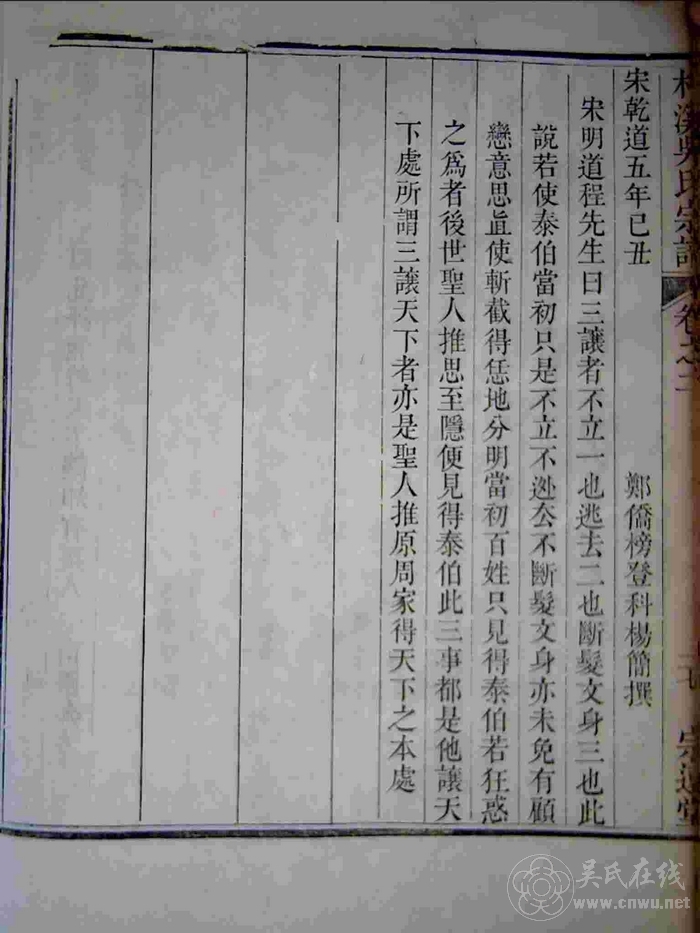 溪吳氏宗譜 卷之二
宋乾道五年己丑 鄭僑榜登科楊簡撰
宋明道程先生曰三讓者不立一也逃去二也斷髮文身三也此
說若使泰伯當初只是不立不逊厺不斷髮文身亦未免有顧
戀意思眞使斬截得恁地分明當初百姓只見得泰伯若狂惑
之爲者後世聖人推思至隱便見得泰伯此三事都是他讓天
下處所謂三讓天下者亦是聖人推原周家得天下之本處
吴氏在线
www.cnwu.net